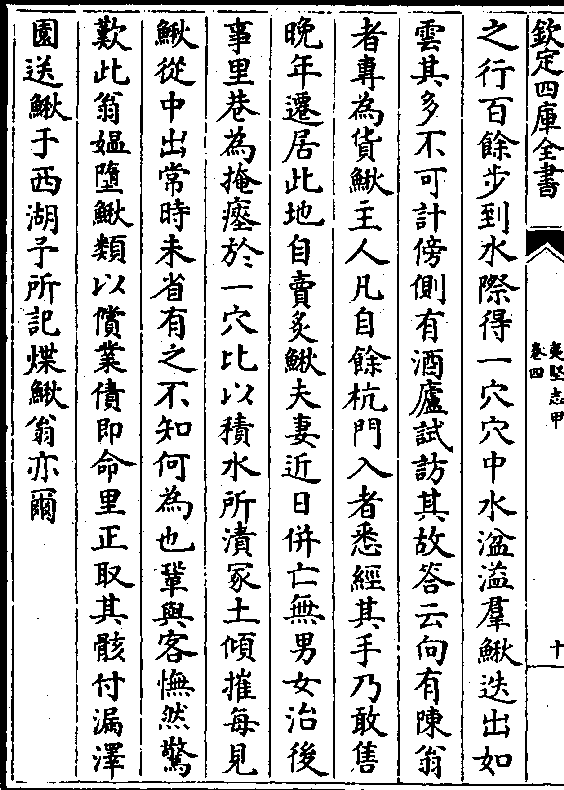 欽定四庫全書
夷堅志甲
卷四
十
之行百餘步到水際得一穴穴中水湓溢羣鰍迭出如
雲其多不可計傍側有酒廬試訪其故答云向有陳翁
者專為貨鰍主人凡自餘杭門入者悉經其手乃敢售
晚年遷居此地自賣炙鰍夫妻近日併亡無男女治後
事里巷為掩瘞於一穴比以積水所漬冢土傾摧每見
鰍從中出常時未省有之不知何為也鞏與客憮然驚
歎此翁媪墮鰍類以償業債即命里正取其骸付漏澤
園送鰍于西湖予所記煠鰍翁亦爾